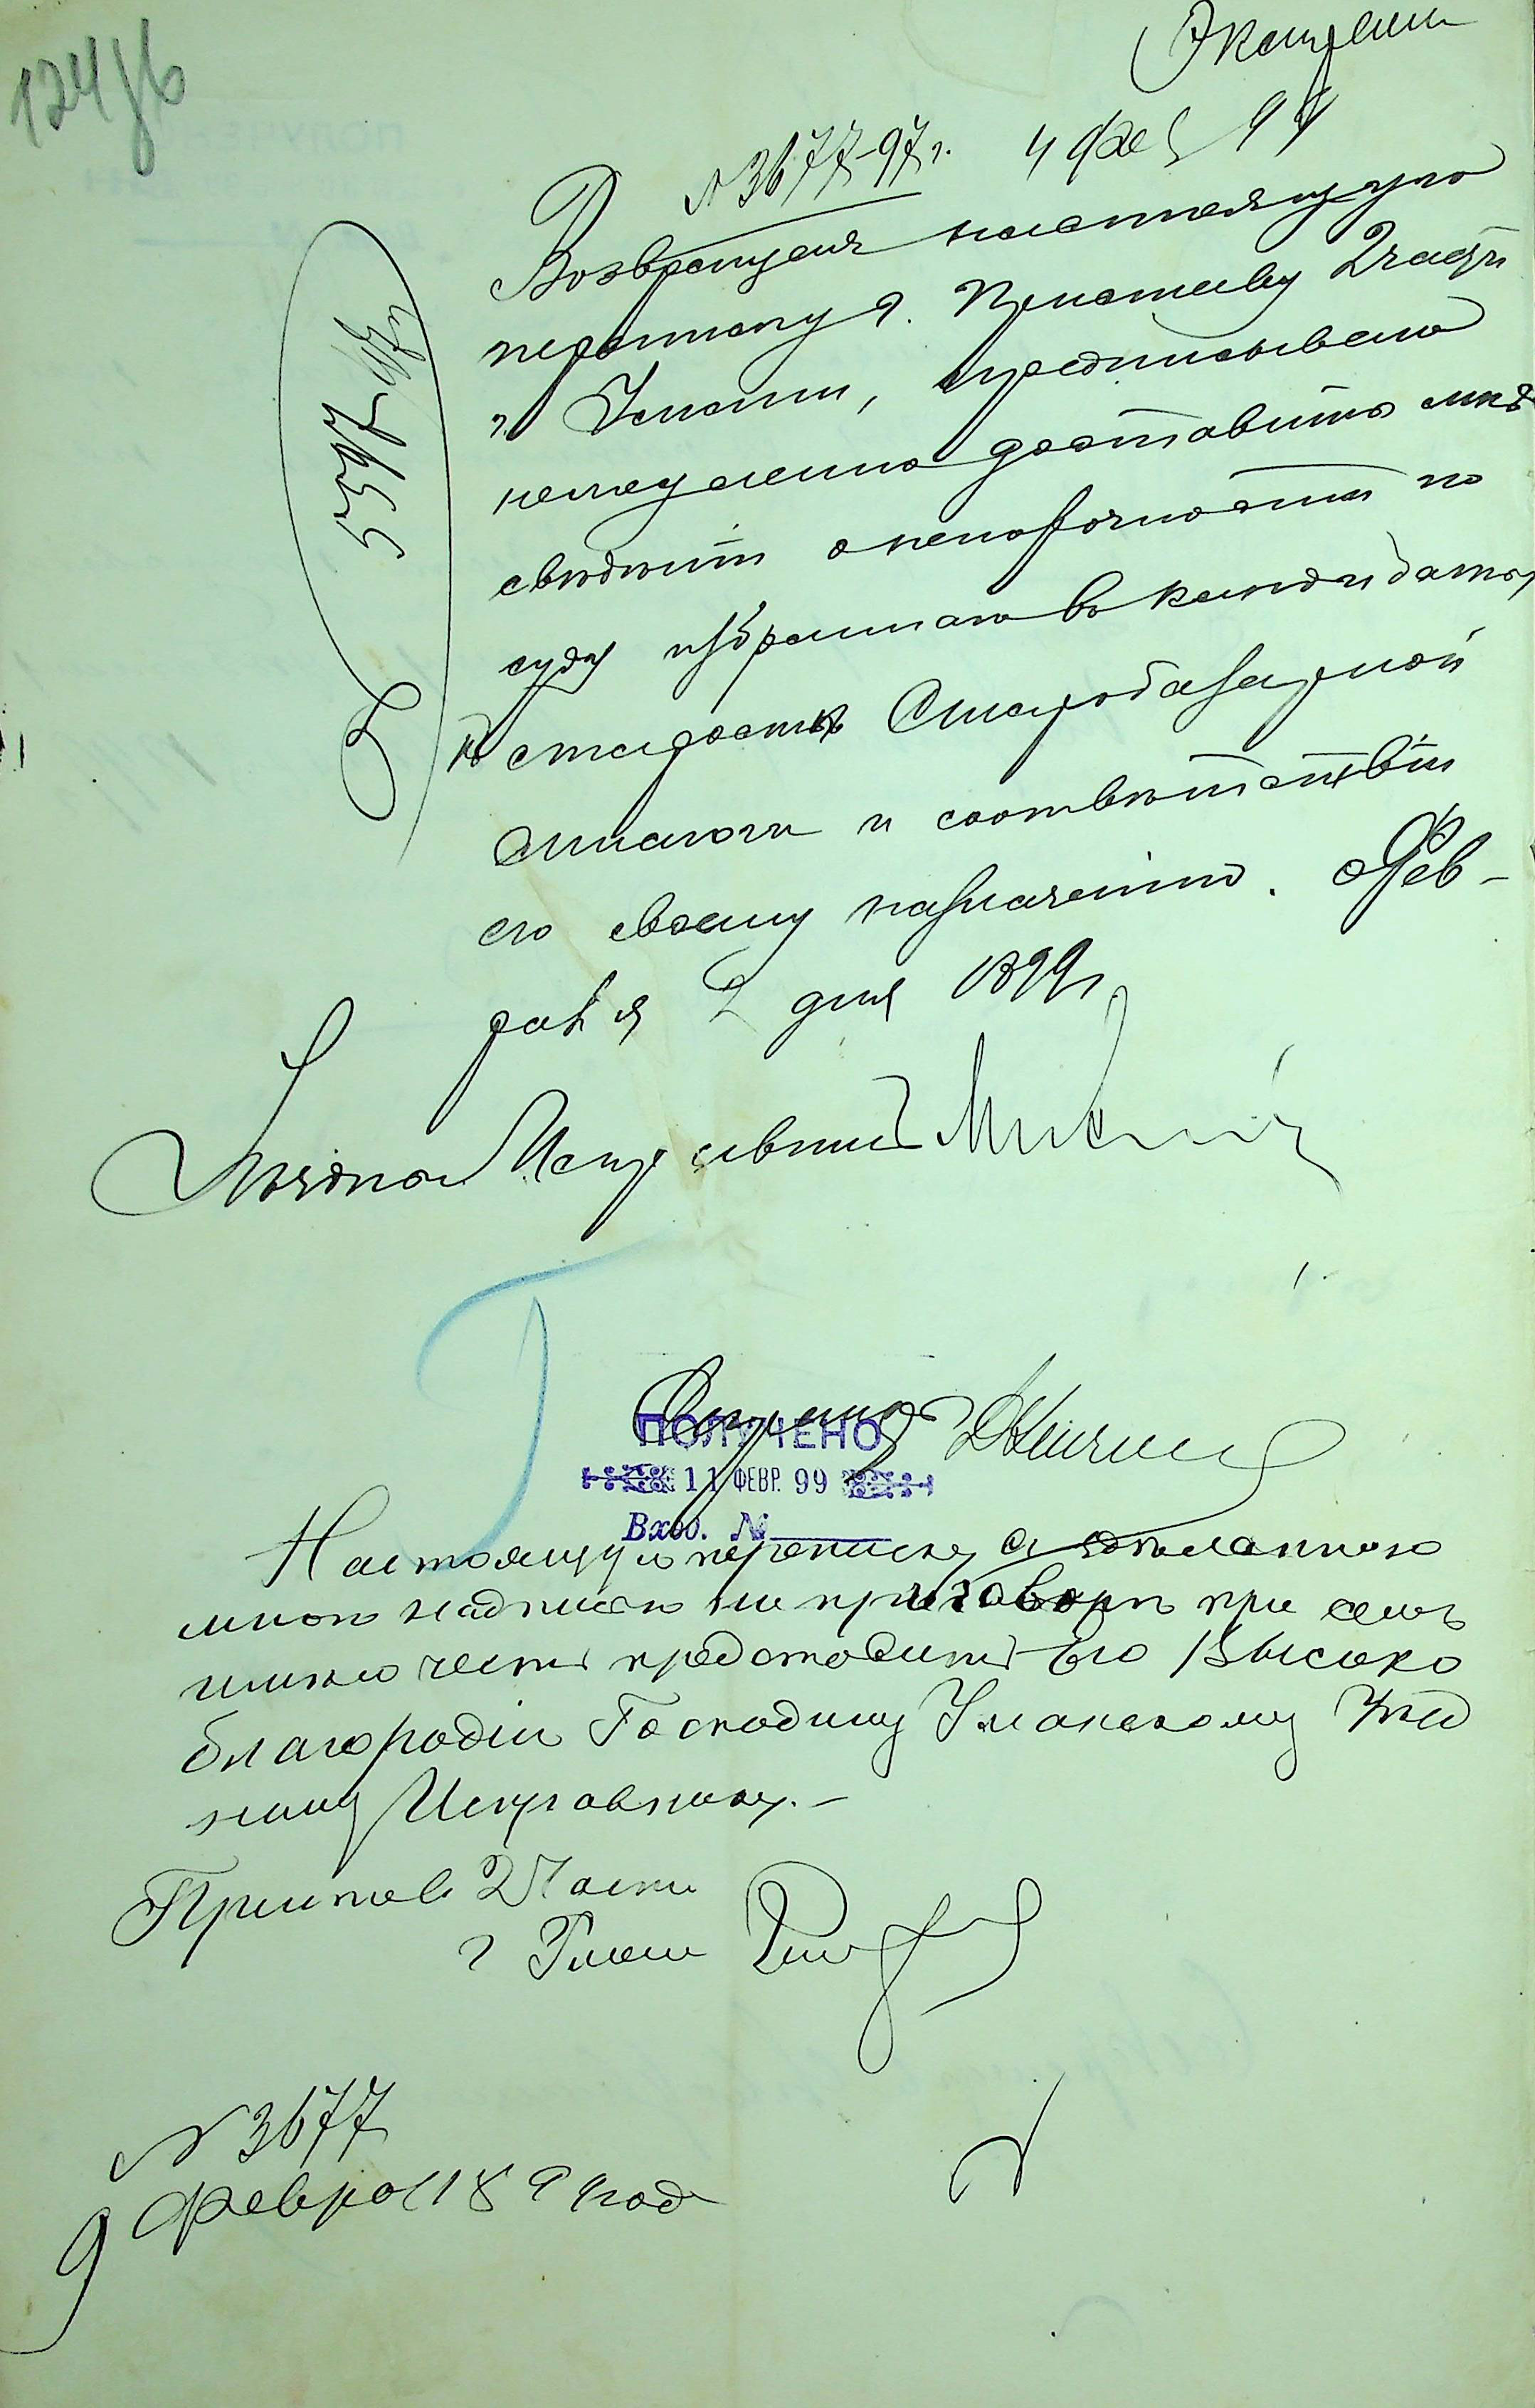 124
№ 3677-97 г. 4 Фев 99
Возвращая настоящую
переписку г. Приставу 2 части
г. Умани, предписываю
немедленно доставить мнѣ
свѣдѣнія о непорочности по
суду избраннаго въ кандидаты
къ старостѣ Старобазарной
и соотвѣтствіи
его своему назначенію. Фев-
раля 2 дня 1899 г.
Уѣздный Исправникъ
ПОЛУЧЕНО
11 ФЕВР. 99
Вход. №
Настоящую переписку съ сдѣланною
мною надписью на приговорѣ при семъ
имѣю честь представить Его Высоко
благородію Господину Уманскому Уѣзд
ному Исправнику. —
Приставъ 2 Части
г Умани
№ 3677
9 Февра 1899 год